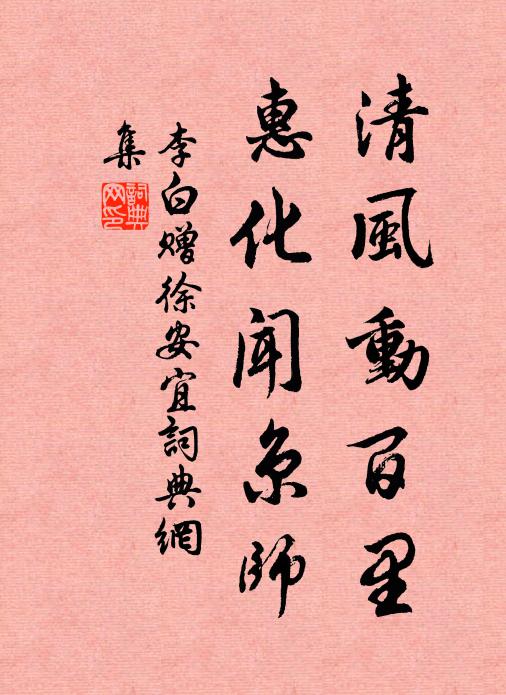 清風動百里
惠化聞京師
李白赠徐安宜詞典網
集
詞典網印